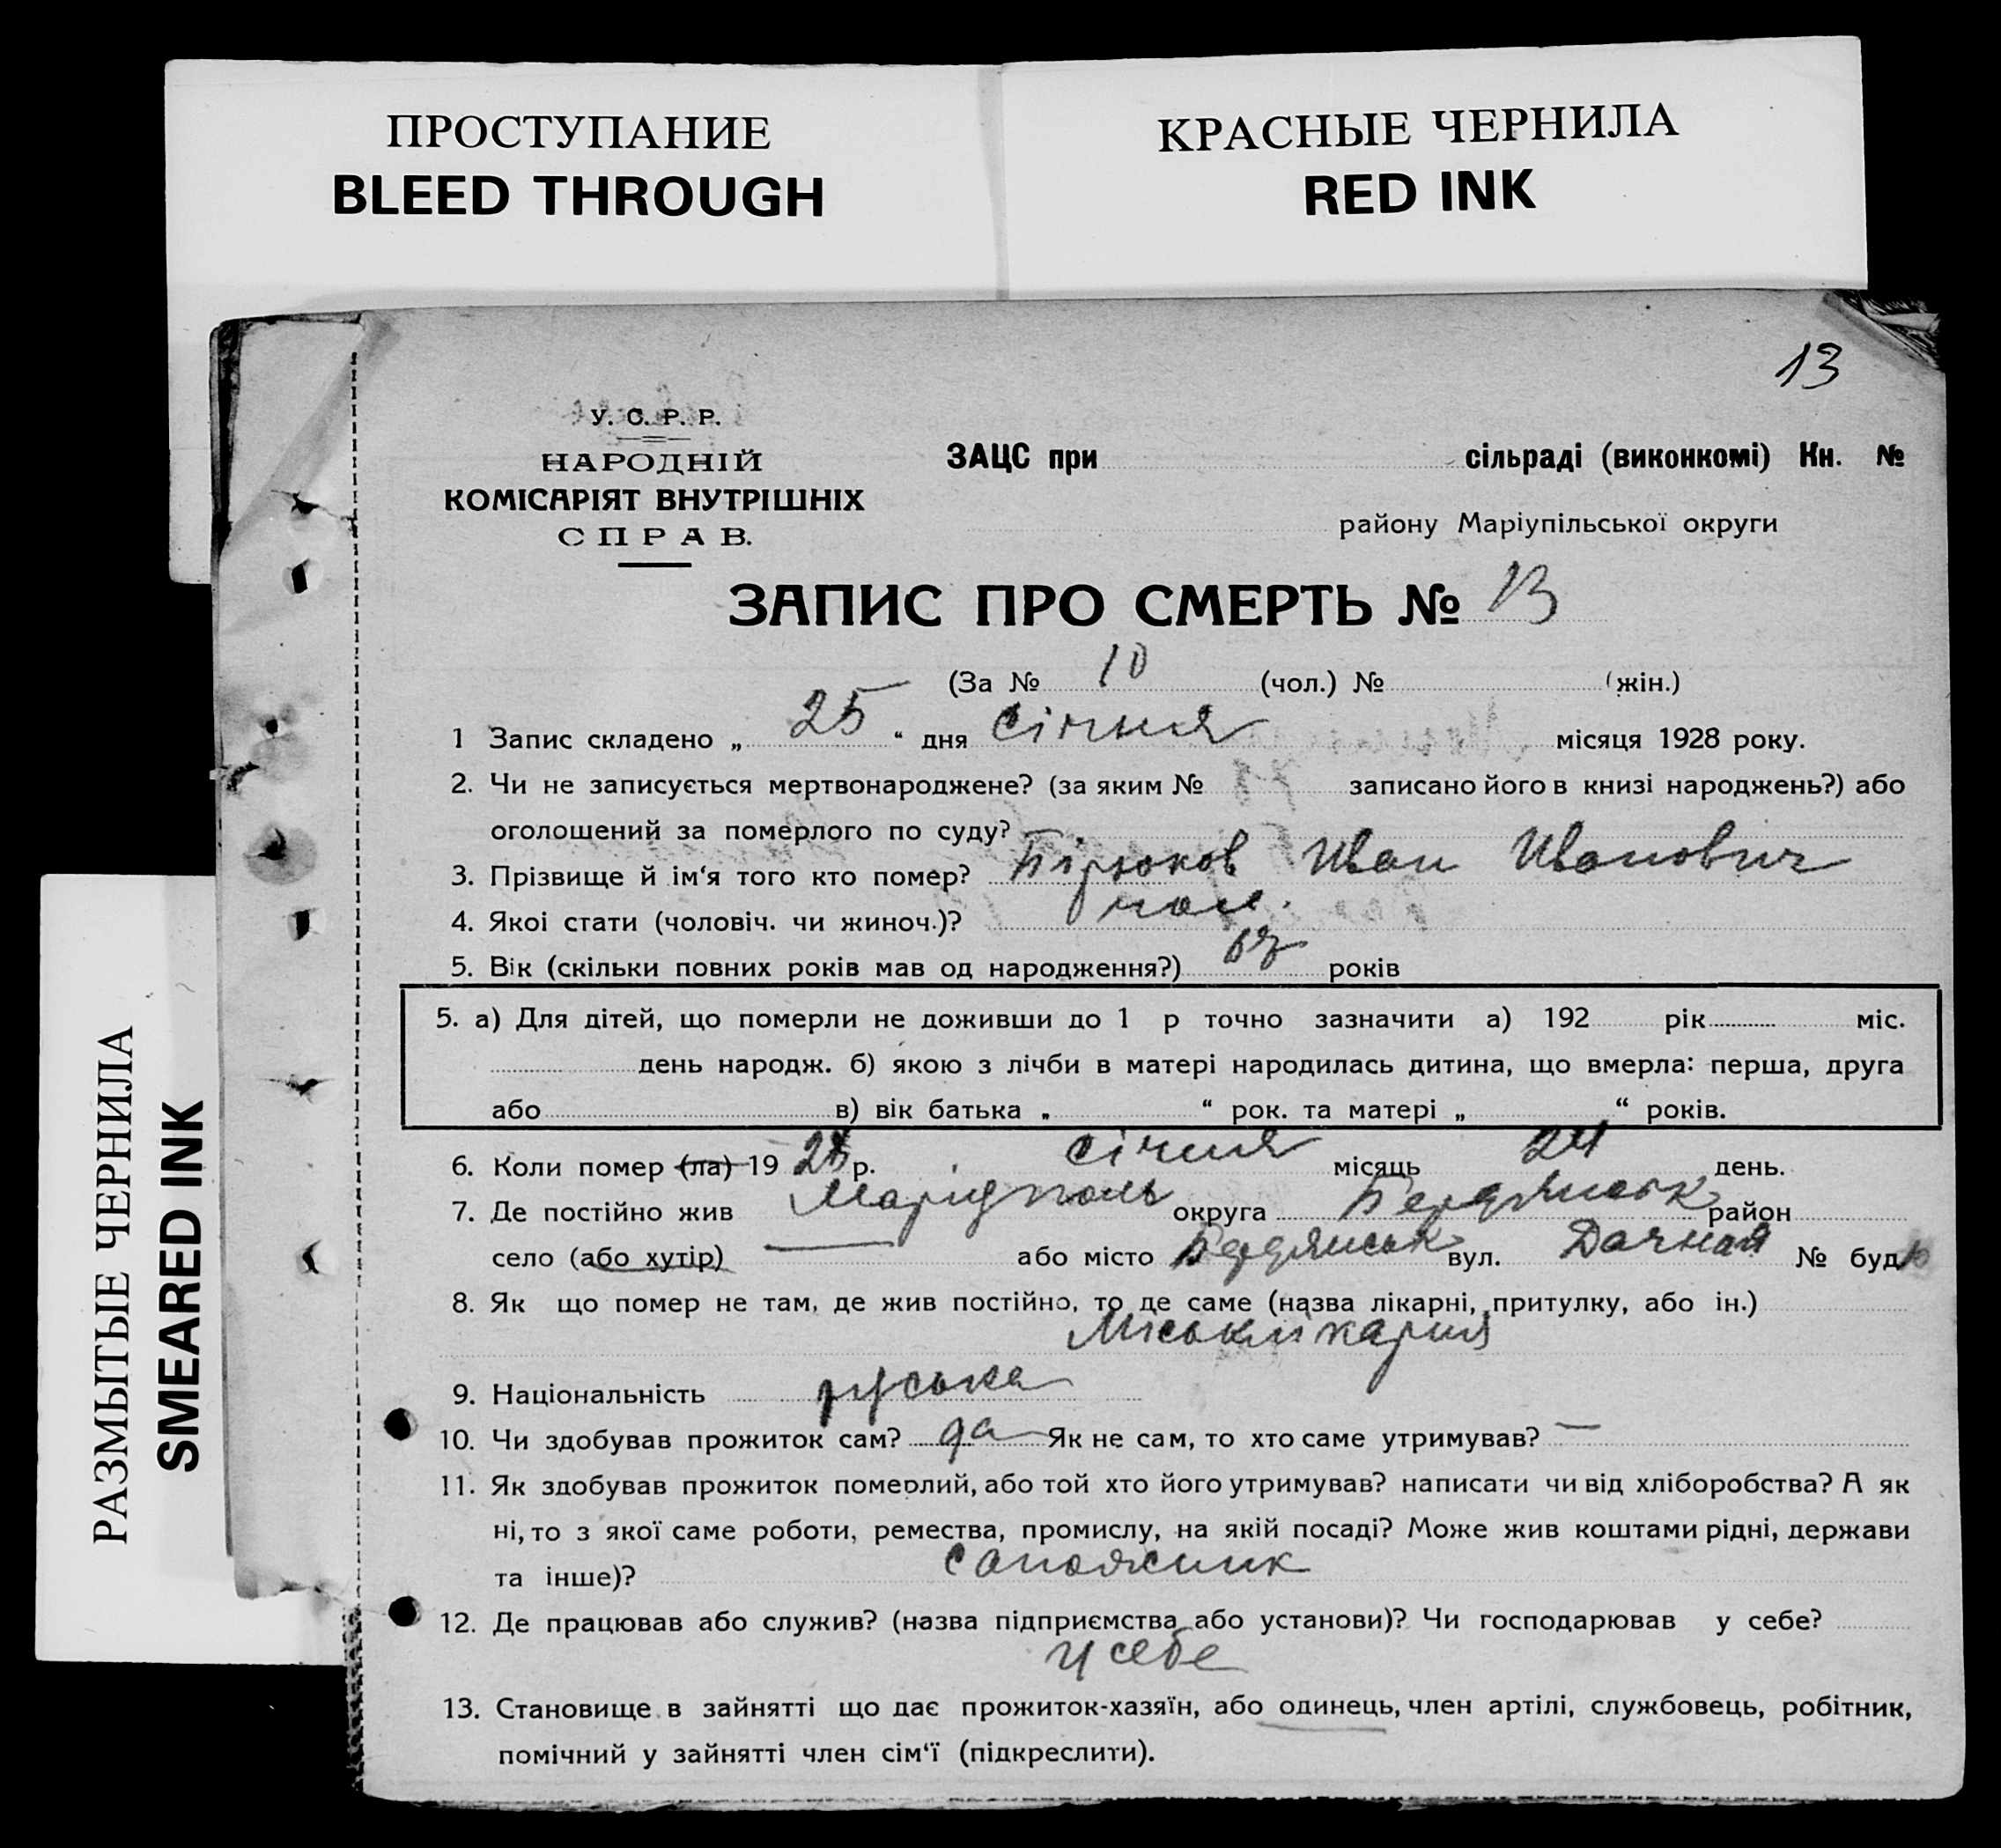 ПРОСТУПАНИЕ
BLEED THROUGH
КРАСНЫЕ ЧЕРНИЛА
RED INK
РАЗМЫТЫЕ ЧЕРНИЛА
SMEARED INK
13
У. С. Р. Р.
НАРОДНІЙ
КОМІСАРІЯТ ВНУТРІШНІХ
СПРАВ.
ЗАЦС при сільраді (виконкомі) Кн. №
району Маріупільської округи
ЗАПИС ПРО СМЕРТЬ № 13
(За № 10 (чол.) № (жін.)
1 Запис складено „ 25 “ дня січня місяця 1928 року.
2. Чи не записується мертвонароджене? (за яким № записано його в книзі народжень?) або
оголошений за померлого по суду?
3. Прізвище й ім‘я того кто помер? Бірюков Иван Иванович
4. Якоі стати (чоловіч. чи жиноч.)? чол.
5. Вік (скільки повних років мав од народження?) років
5. а) Для дітей, що померли не доживши до 1 р точно зазначити а) 192 рік міс.
день народж. б) якою з лічби в матері народилась дитина, що вмерла: перша, друга
або в) вік батька „ “ рок. та матері „ “ років.
6. Коли помер (ла) 19 28 р. січня місяць 24 день.
7. Де постійно жив Маріуполь округа Бердянськ район
село (або хутір) — або місто Бердянськ вул. Дачная № буд
8. Як що помер не там, де жив постійно, то де саме (назва лікарні, притулку, або ін.)
Міськлікарня
9. Національність руська
10. Чи здобував прожиток сам? да Як не сам, то хто саме утримував? —
11. Як здобував прожиток померлий, або той хто його утримував? написати чи від хліборобства? А як
ні, то з якої саме роботи, ремества, промислу, на якій посаді? Може жив коштами рідні, держави
та інше)? сапожник
12. Де працював або служив? (назва підприємства або установи)? Чи господарював у себе?
у себе
13. Становище в зайнятті що дає прожиток-хазяїн, або одинець, член артілі, службовець, робітник,
помічний у зайнятті член сім‘ї (підкреслити).